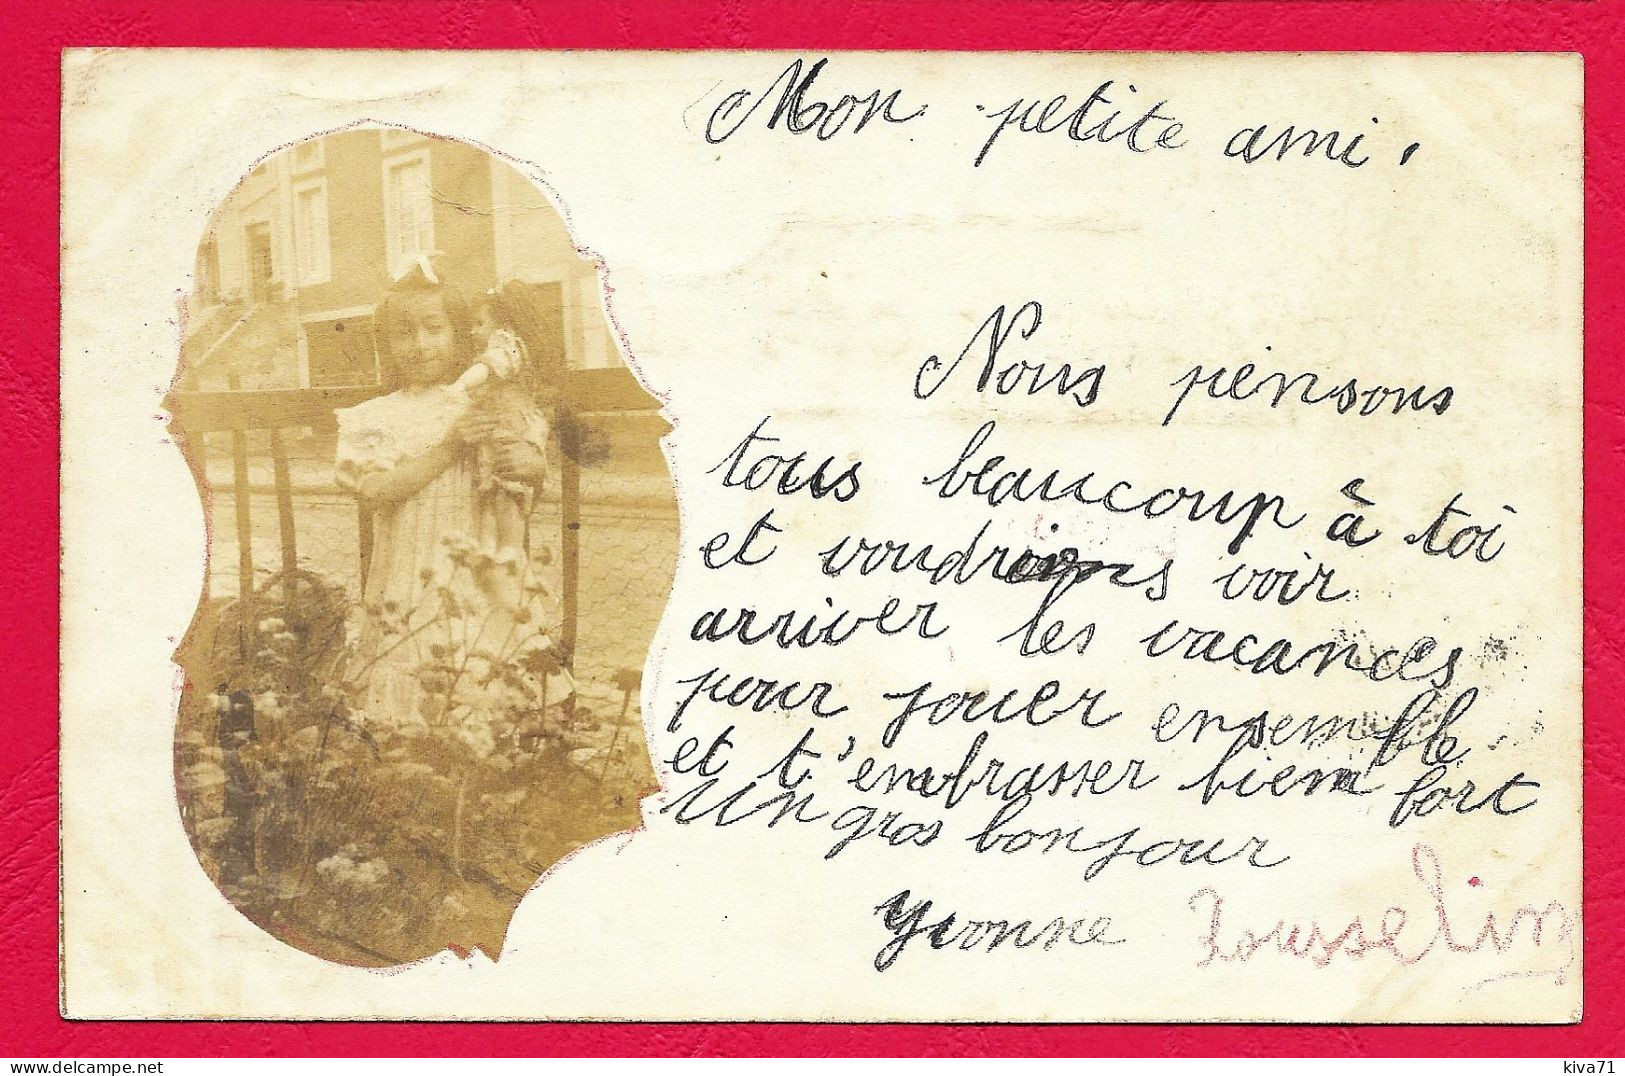 Mon petite ami.
Nous pensons
tous beaucoup à toi
et voudrions voir
arriver les vacances
pour jouer ensemble
et t'embrasser bien fort
Un gros bonjour
Yvonne Rousselin
kiva71